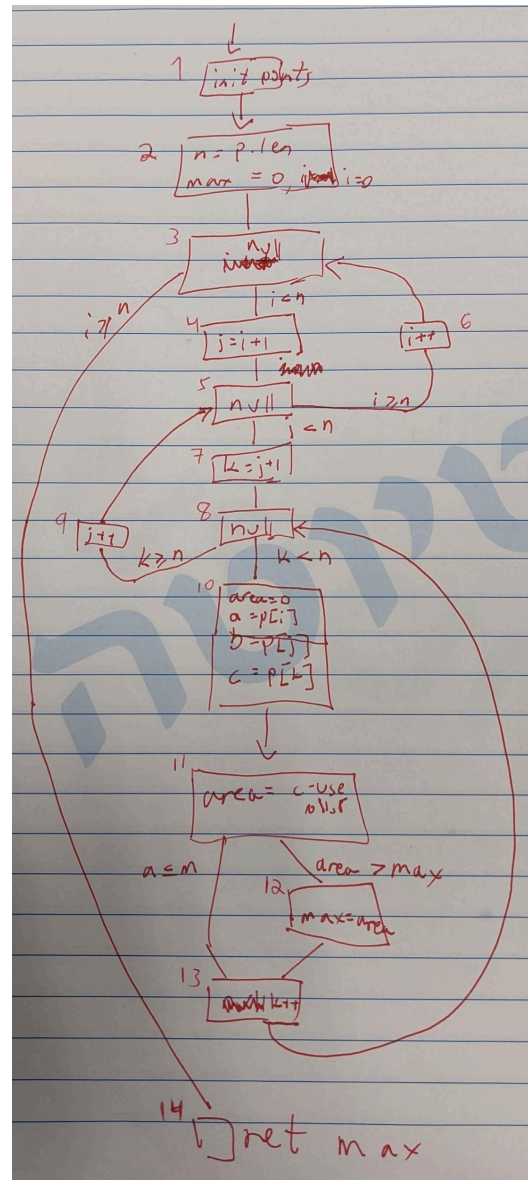 1
init points
2
n = p.len
max = 0, i=0
3
null
i < n
i ≥ n
4
j = i+1
i++
6
5
null
i ≥ n
j < n
7
k = j+1
8
null
9
j++
k ≥ n
k < n
10
area=0
a = p[i]
b = p[j]
c = p[k]
11
area = c-use
a ≤ m
area > max
12
max=area
13
k++
14
ret max